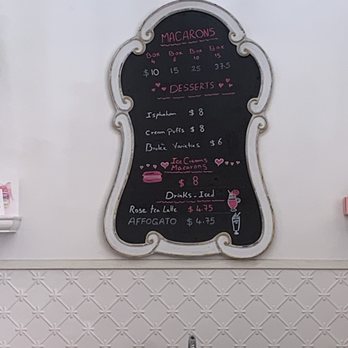 MACARONS
Box Box Box Box
4 6 10 15
$10 15 25 37.5
DESSERTS
Isphahan $8
Cream Puffs $8
Varieties $6
Ice Cream
Macarons
$8
Drinks - Iced
Rose tea Latte $4.75
AFFOGATO $4.75